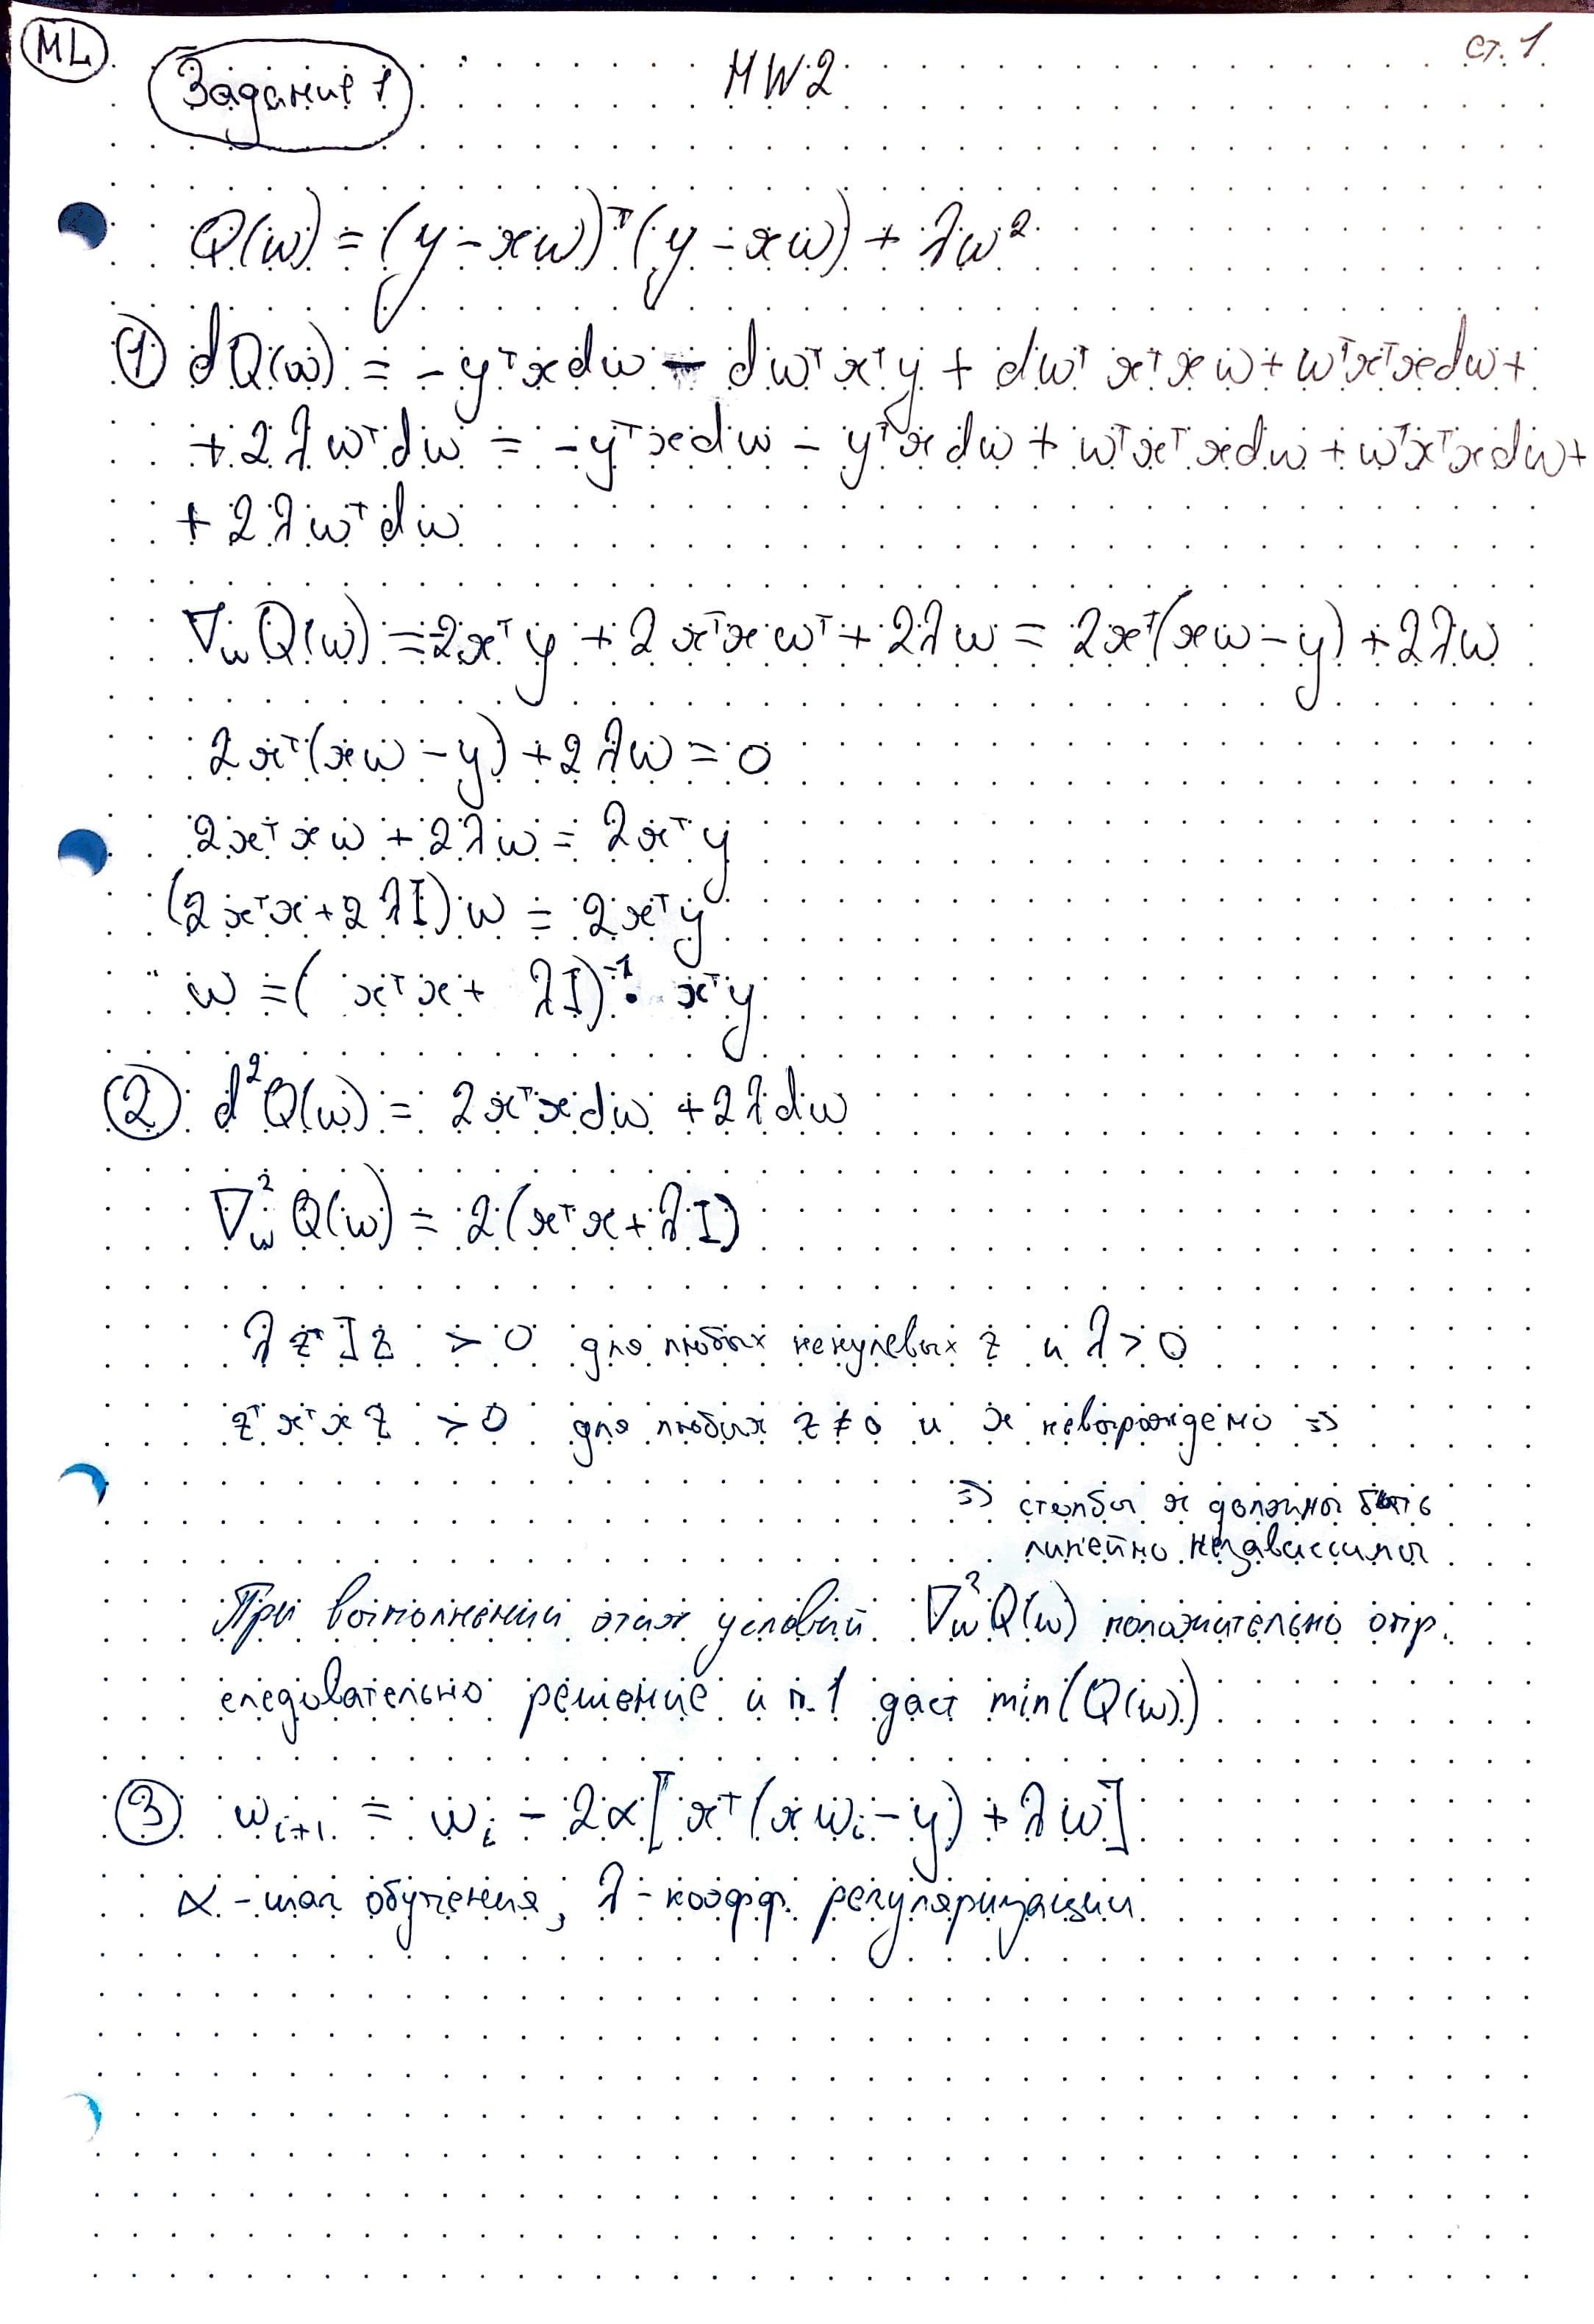 ML
ст. 1
Задание 1
HW2
Q(w) = (y - xw)ᵀ(y - xw) + λw²
① dQ(w) = - yᵀxdw - dwᵀxᵀy + dwᵀxᵀxw + wᵀxᵀxdw +
+ 2λwᵀdw = - yᵀxdw - yᵀxdw + wᵀxᵀxdw + wᵀxᵀxdw +
+ 2λwᵀdw
∇_w Q(w) = -2xᵀy + 2xᵀxwᵀ + 2λw = 2xᵀ(xw - y) + 2λw
2xᵀ(xw - y) + 2λw = 0
2xᵀxw + 2λw = 2xᵀy
(2xᵀx + 2λI)w = 2xᵀy
w = (xᵀx + λI)⁻¹ · xᵀy
② d²Q(w) = 2xᵀxdw + 2λdw
∇²_w Q(w) = 2(xᵀx + λI)
λzᵀIz > 0 для любых ненулевых z и λ > 0
zᵀxᵀxz > 0 для любых z ≠ 0 и x невырождено ⇒
⇒ столбы x должны быть
линейно независсимы
При выполнении этих условий ∇²_w Q(w) положительно опр.
следовательно решение и п.1 даст min(Q(w))
③ wᵢ₊₁ = wᵢ - 2α[xᵀ(xwᵢ - y) + λw]
α - шаг обучения, λ - коэфф. регуляризации